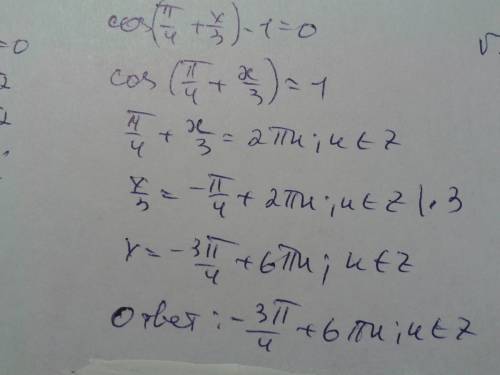 =0
cos(π/4 + x/3) - 1 = 0
2
cos(π/4 + x/3) = 1
2
π/4 + x/3 = 2πn; n ∈ Z
x/3 = -π/4 + 2πn; n ∈ Z | · 3
x = -3π/4 + 6πn; n ∈ Z
Ответ: -3π/4 + 6πn; n ∈ Z